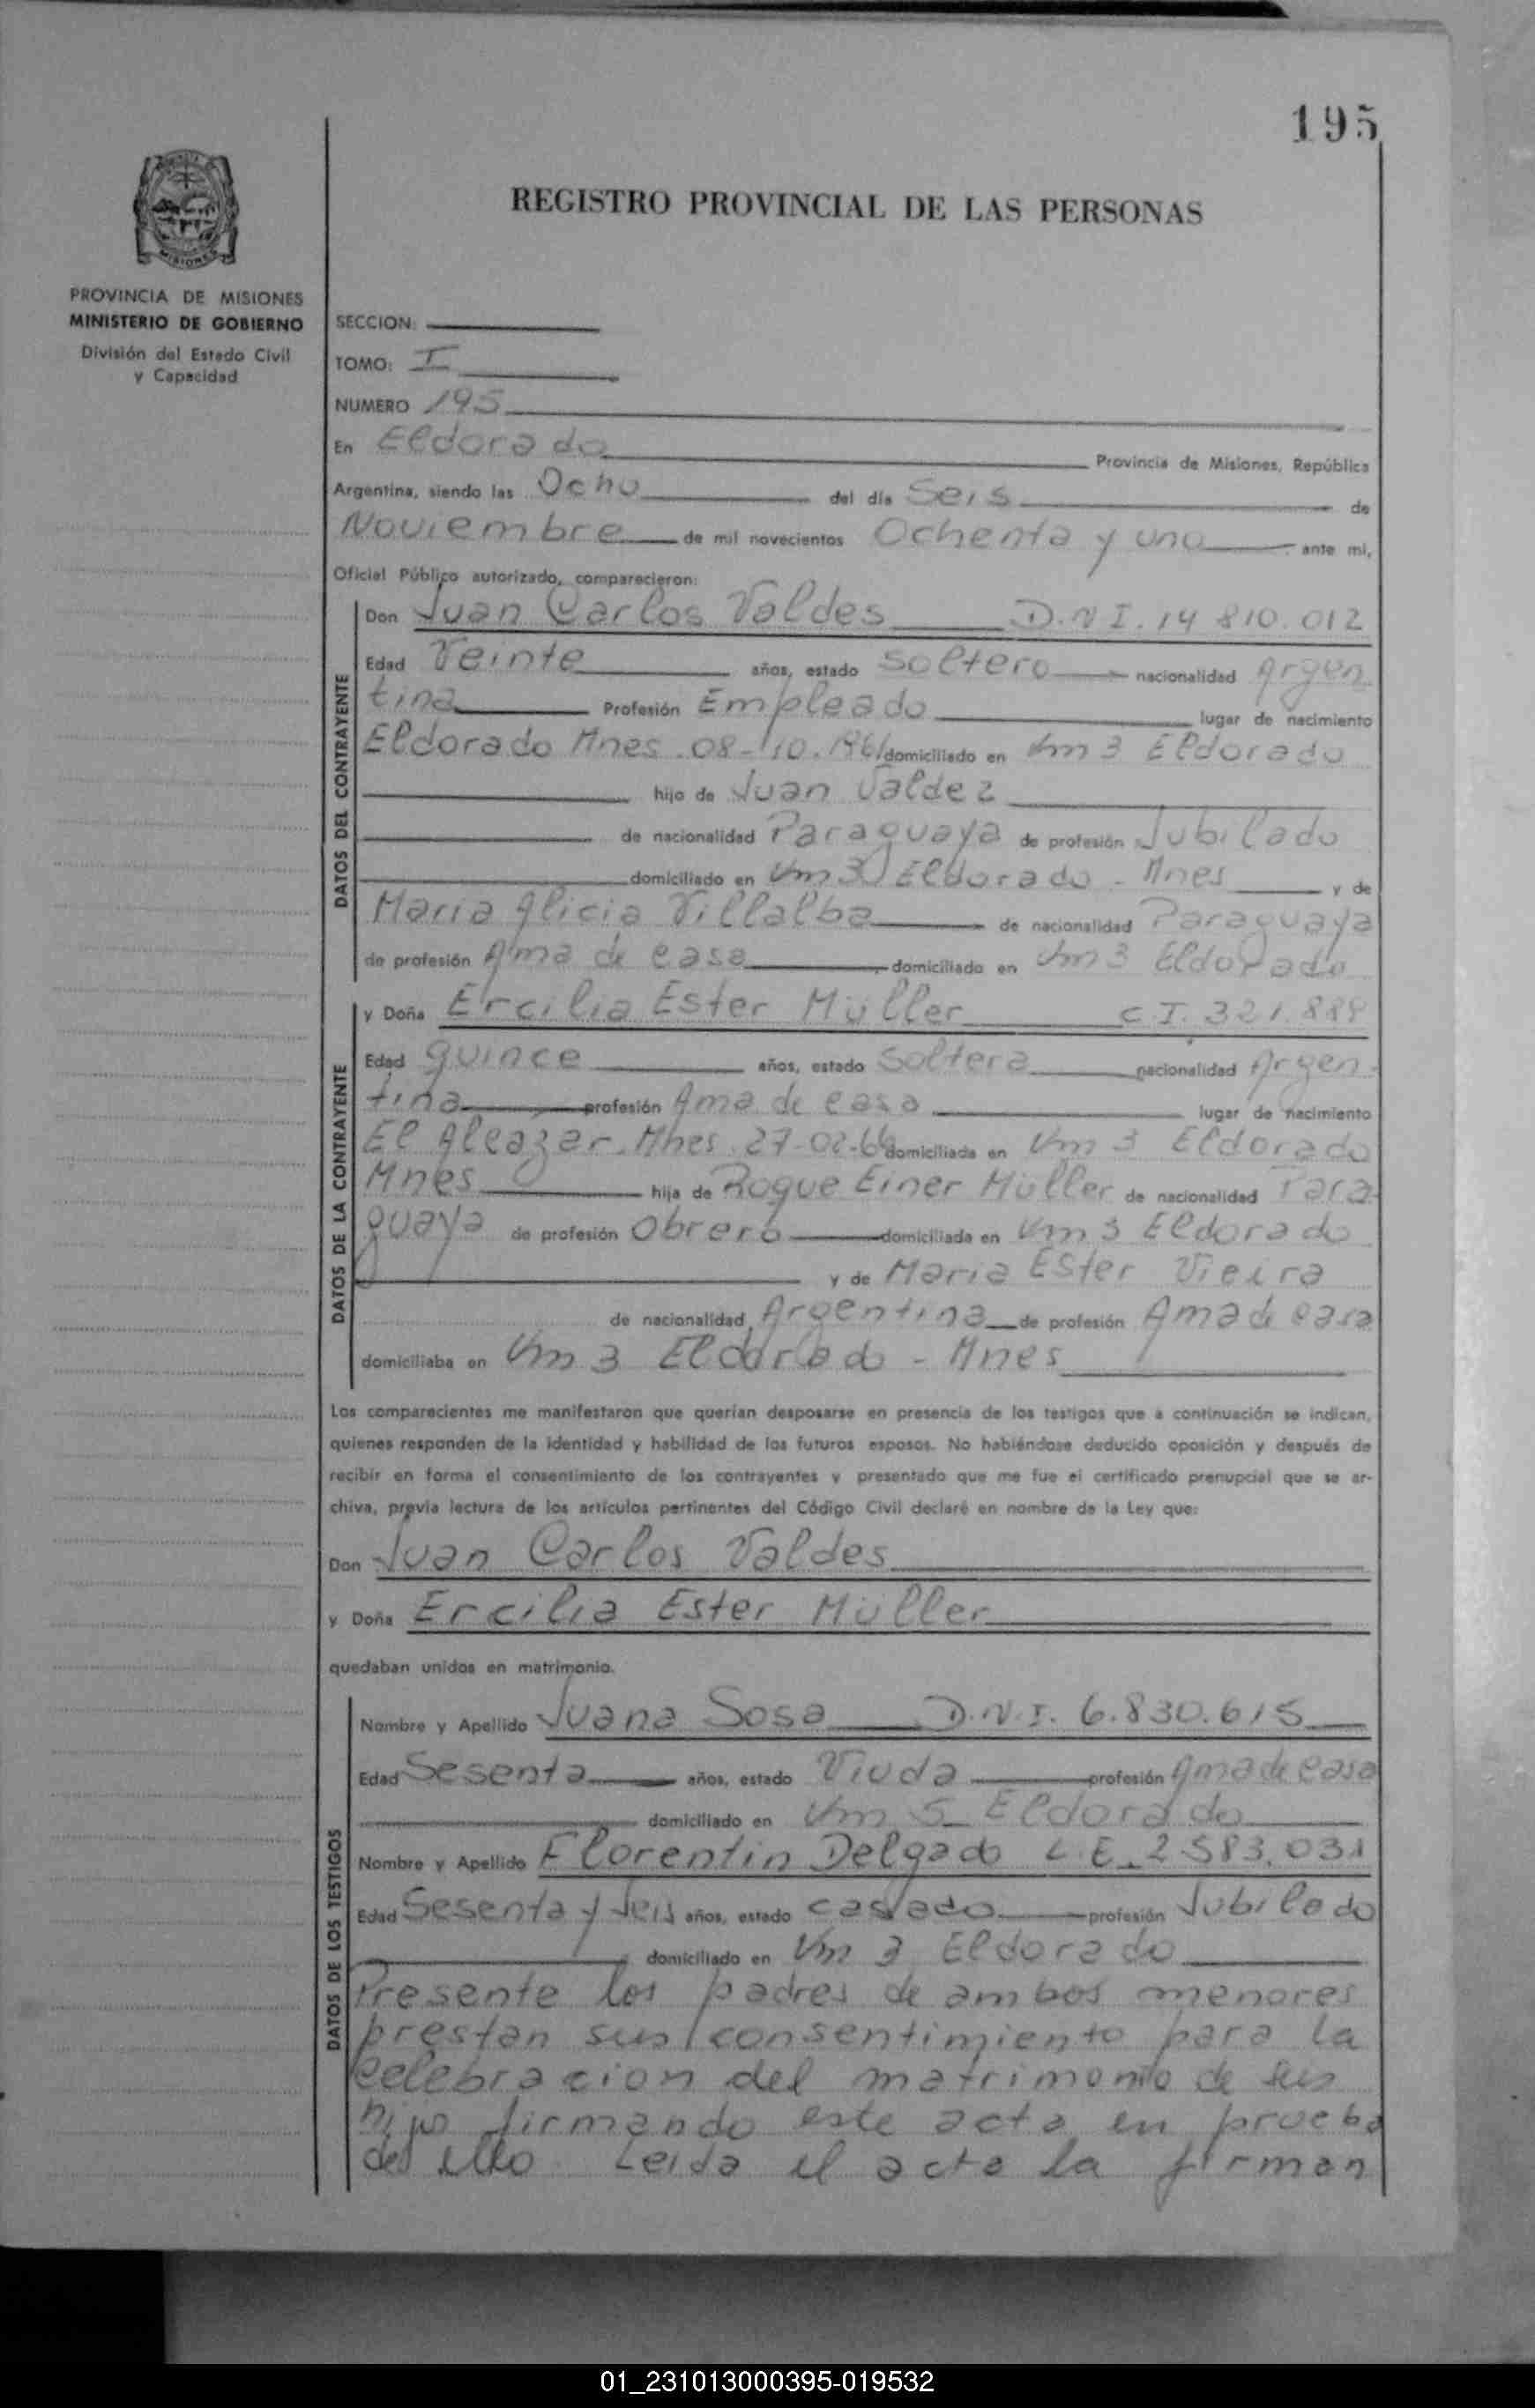 195
REGISTRO PROVINCIAL DE LAS PERSONAS
MISIONES
PROVINCIA DE MISIONES
MINISTERIO DE GOBIERNO
División del Estado Civil
y Capacidad
SECCION:
TOMO: I
NUMERO 195
En Eldorado Provincia de Misiones, República
Argentina, siendo las Ocho del día Seis de
Noviembre de mil novecientos Ochenta y uno ante mi,
Oficial Público autorizado, comparecieron:
DATOS DEL CONTRAYENTE
Don Juan Carlos Valdes D.N.I. 14 810.012
Edad Veinte años, estado Soltero nacionalidad Argen
tina Profesión Empleado lugar de nacimiento
Eldorado Mnes. 08-10.1961 domiciliado en Km 3 Eldorado
hijo de Juan Valdez
de nacionalidad Paraguaya de profesión Jubilado
domiciliado en Km 3 Eldorado - Mnes y de
Maria Alicia Villalba de nacionalidad Paraguaya
de profesión Ama de casa domiciliada en Km 3 Eldorado
DATOS DE LA CONTRAYENTE
y Doña Ercilia Ester Müller C.I. 321.889
Edad quince años, estado Soltera nacionalidad Argen-
tina profesión Ama de casa lugar de nacimiento
El Alcazar. Mnes. 27-02-66 domiciliada en Km 3 Eldorado
Mnes hija de Roque Einer Müller de nacionalidad Para-
guaya de profesión Obrero domiciliada en Km 3 Eldorado
y de Maria Ester Vieira
de nacionalidad Argentina de profesión Ama de casa
domiciliaba en Km 3 Eldorado - Mnes
Los comparecientes me manifestaron que querían desposarse en presencia de los testigos que a continuación se indican,
quienes responden de la identidad y habilidad de los futuros esposos. No habiéndose deducido oposición y después de
recibir en forma el consentimiento de los contrayentes y presentado que me fue el certificado prenupcial que se ar-
chiva, previa lectura de los artículos pertinentes del Código Civil declaré en nombre de la Ley que:
Don Juan Carlos Valdes
y Doña Ercilia Ester Müller
quedaban unidos en matrimonio.
DATOS DE LOS TESTIGOS
Nombre y Apellido Juana Sosa D.N.I. 6.830.615
Edad Sesenta años, estado Viuda profesión Ama de casa
domiciliado en Km 5 Eldorado
Nombre y Apellido Florentin Delgado L.E. 2.583.031
Edad Sesenta y seis años, estado casado profesión Jubilado
domiciliado en Km 3 Eldorado
Presente los padres de ambos menores
prestan sus consentimiento para la
celebracion del matrimonio de sus
hijos firmando este acta en prueba
de ello. Leida el acta la firman
01_231013000395-019532